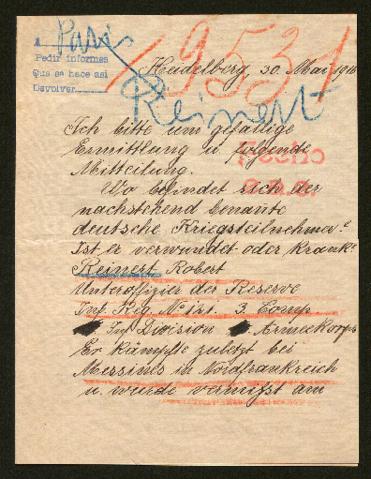 A Paris
Pedir informes
Que se hace asi
Devolver
19531
Heidelberg, 30. Mai 1916
Reinert
Ich bitte um gefällige
Ermittlung u. folgende
Mitteilung.
Wo befindet sich der
nachstehend benannte
deutsche Kriegsteilnehmer?
Ist er verwundet oder krank?
Reinert Robert
Unteroffizier der Reserve
Inf. Reg. No 121. 3. Comp.
Inf Division Armeekorps
Er kämpfte zuletzt bei
Messines in Nordfrankreich
u. wurde vermißt am